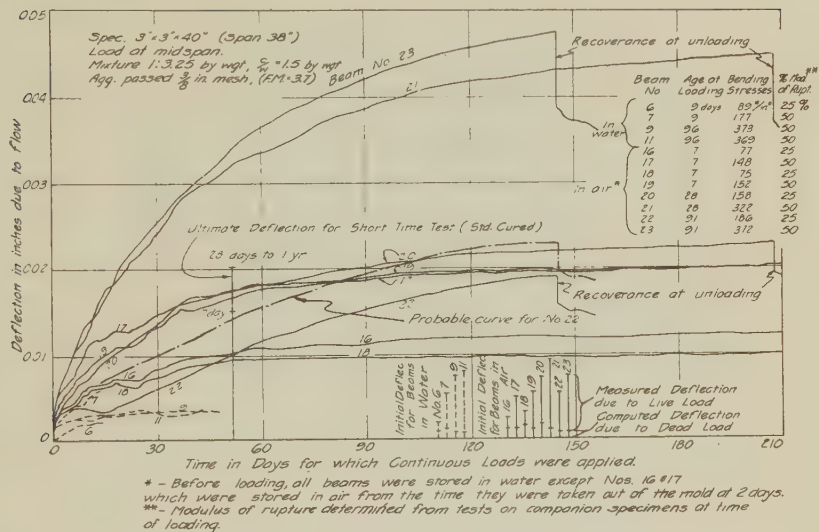 0.05
0.04
0.03
0.02
0.01
0
Deflection in inches due to flow
Spec. 3"x3"x40" (Span 38")
Load at midspan.
Mixture 1:3.25 by wgt, c/w = 1.5 by wgt
Agg. passed 3/8 in mesh, (F.M.=3.7)
Beam No 23
21
Recoverance at unloading
Beam No Age at Loading Bending Stresses % Mod** of Rupt.
In water
6 9 days 89#/in² 25%
7 9 177 50
9 96 373 50
11 96 369 50
In air*
16 7 77 25
17 7 148 50
18 7 75 25
19 7 152 50
20 28 158 25
21 28 322 50
22 91 186 25
23 91 312 50
Ultimate Deflection for Short Time Test (Std. Cured)
28 days to 1 yr
7 day
17
19
20
16
18
22
20
19
17
22
Recoverance at unloading
Probable curve for No 22
16
18
7
6
11
9
Initial Deflec for Beams in Water
No. 6
7
9
11
Initial Deflec for Beams in Air
16
17
18
19
20
22
21
23
Measured Deflection due to Live Load
Computed Deflection due to Dead Load
0 30 60 90 120 150 180 210
Time in Days for which Continuous Loads were applied.
* - Before loading, all beams were stored in water except Nos. 16 & 17
which were stored in air from the time they were taken out of the mold at 2 days.
** - Modulus of rupture determined from tests on companion specimens at time
of loading.